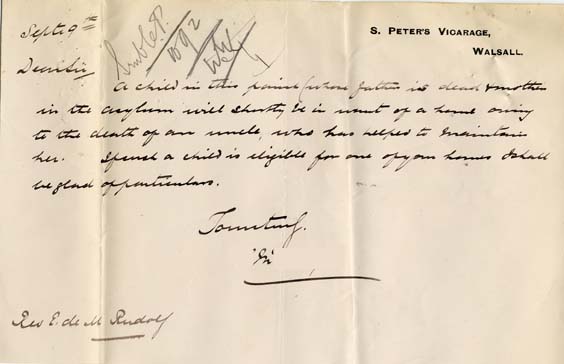 S. PETER'S VICARAGE,
WALSALL.
Sept 9th
Dear Sir
A child in this parish (whose father is dead & mother
in the asylum will shortly be in want of a home owing
to the death of an uncle, who has helped to maintain
her. If such a child is eligible for one of your homes I shall
be glad of particulars.
Yours truly
Rev E. de M Rudolf